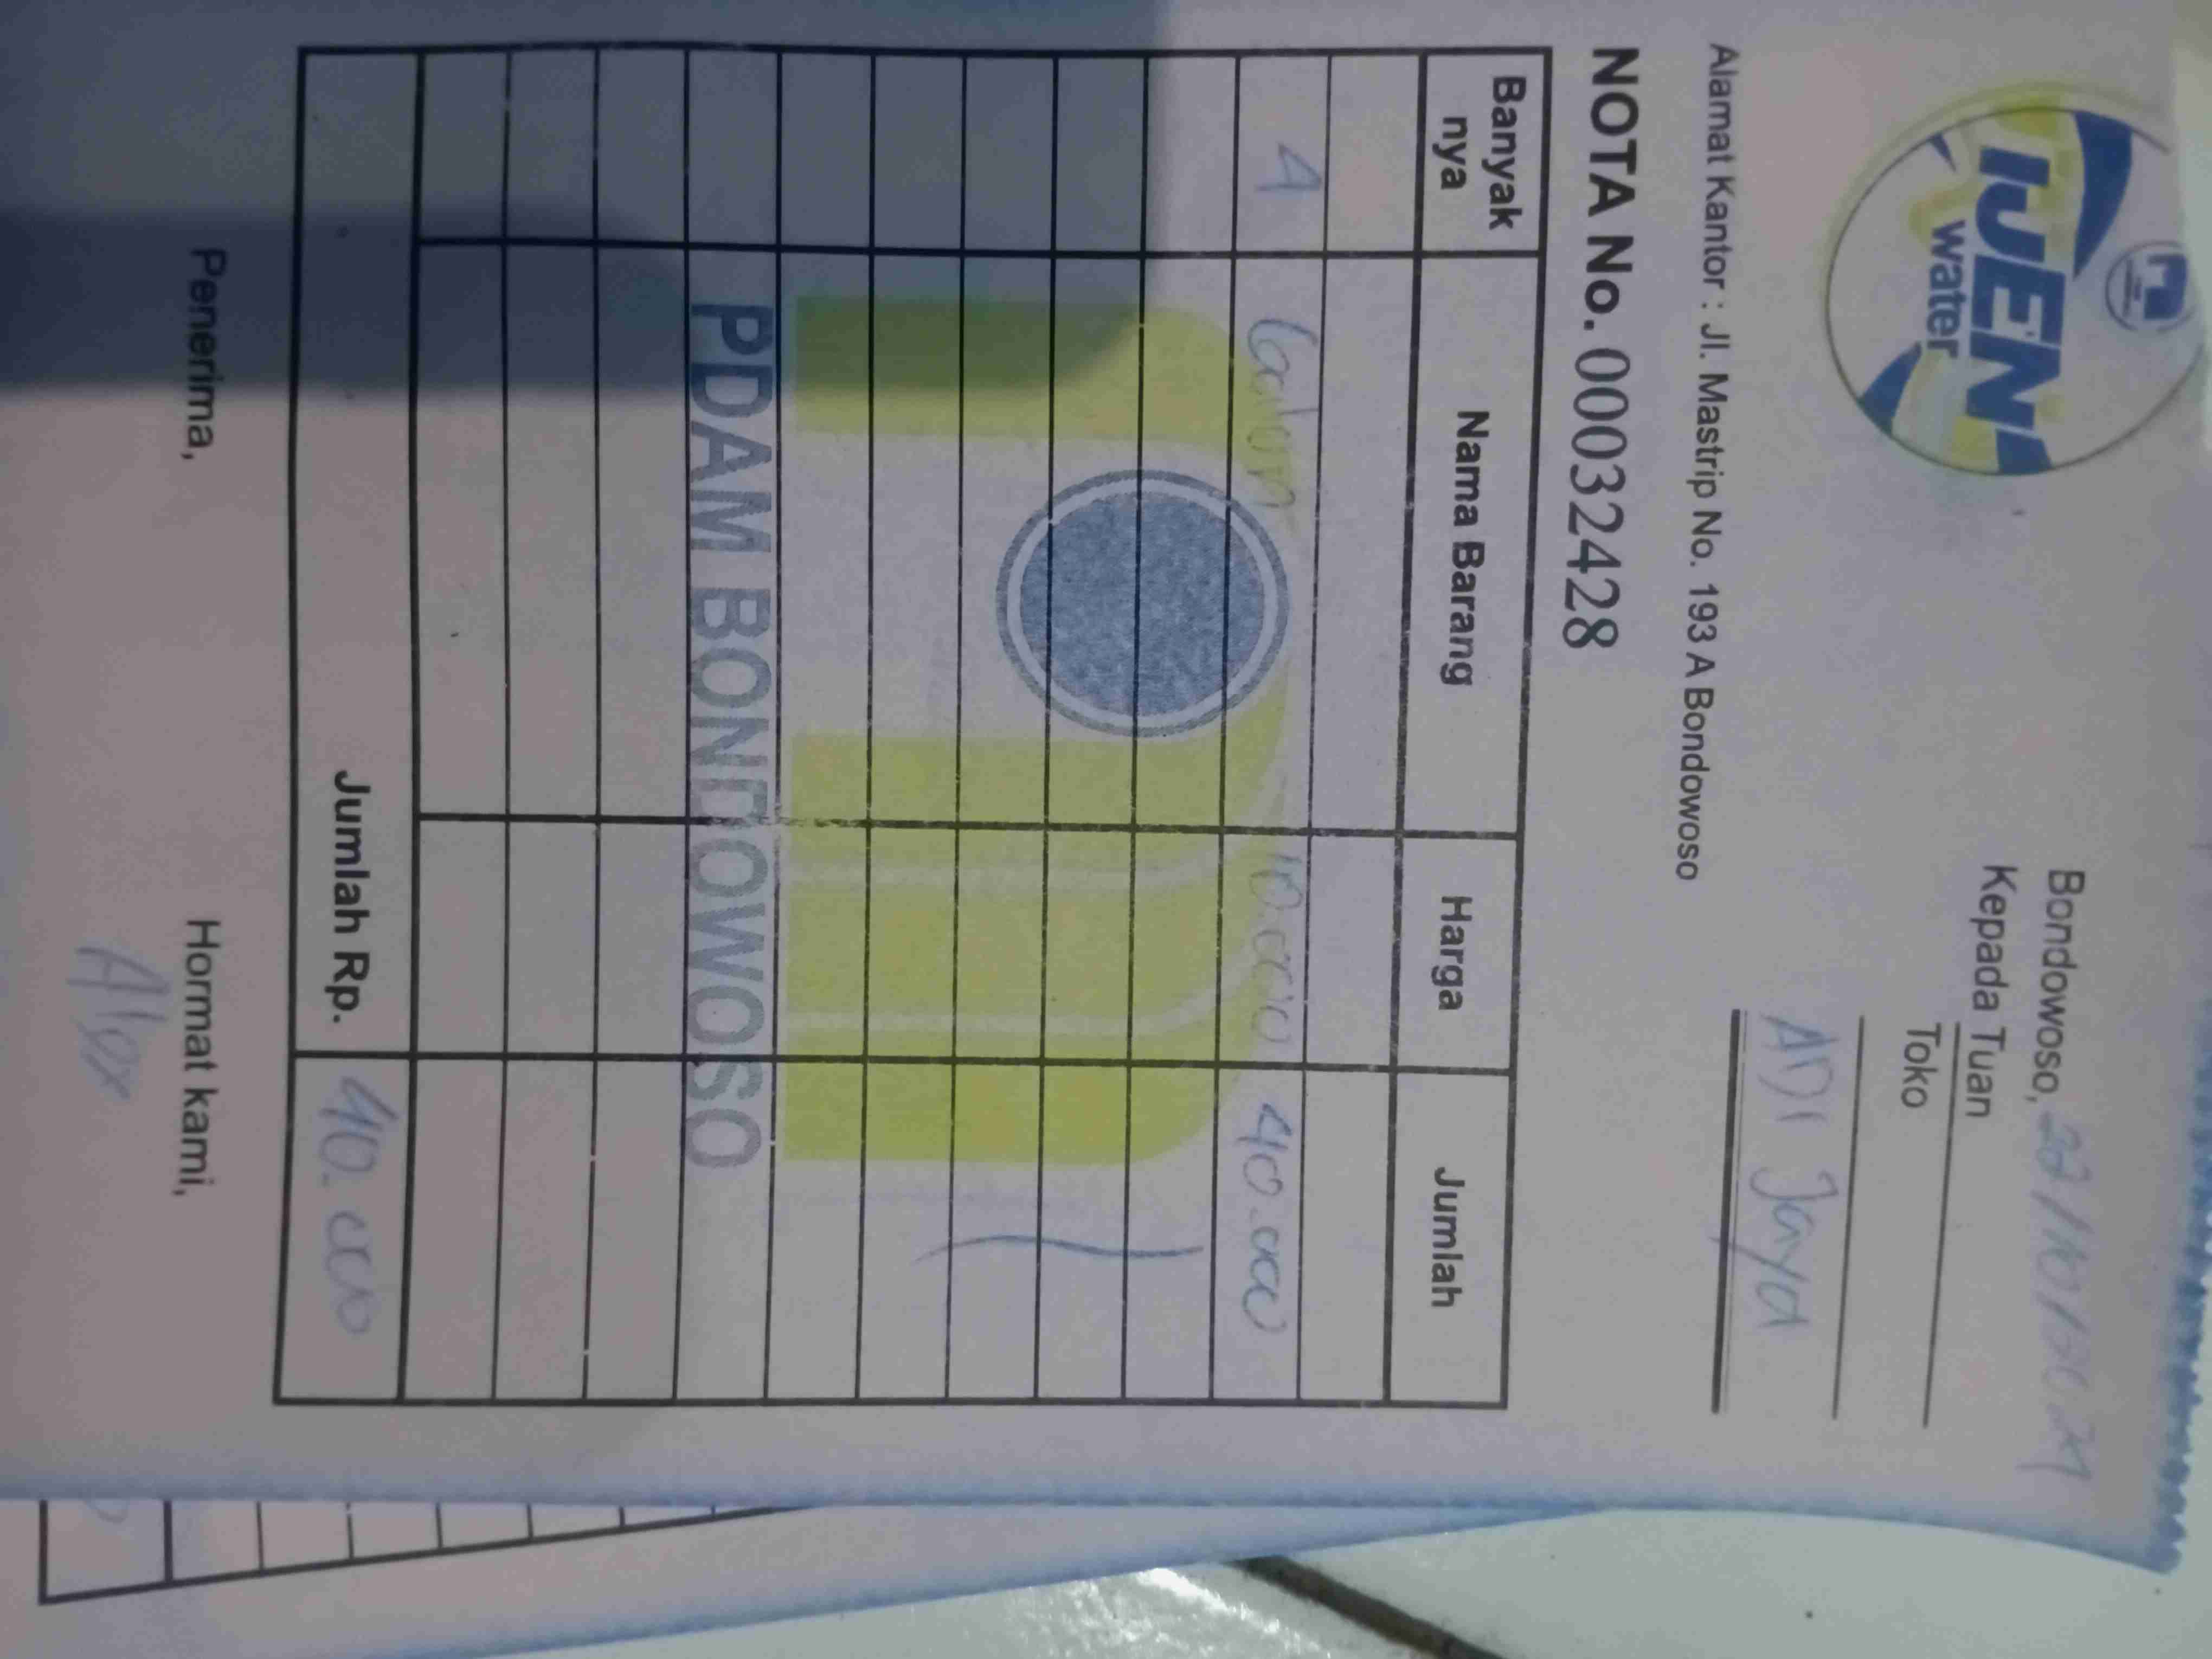 IJEN
water
Bondowoso, 22/10/2021
Kepada Tuan
Toko
ADI Jaya
Alamat Kantor : Jl. Mastrip No. 193 A Bondowoso
NOTA No. 00032428
Banyak nya Nama Barang Harga Jumlah
4 Galon 10.000 40.000
PDAM BONDOWOSO
Jumlah Rp. 40.000
Penerima, Hormat kami,